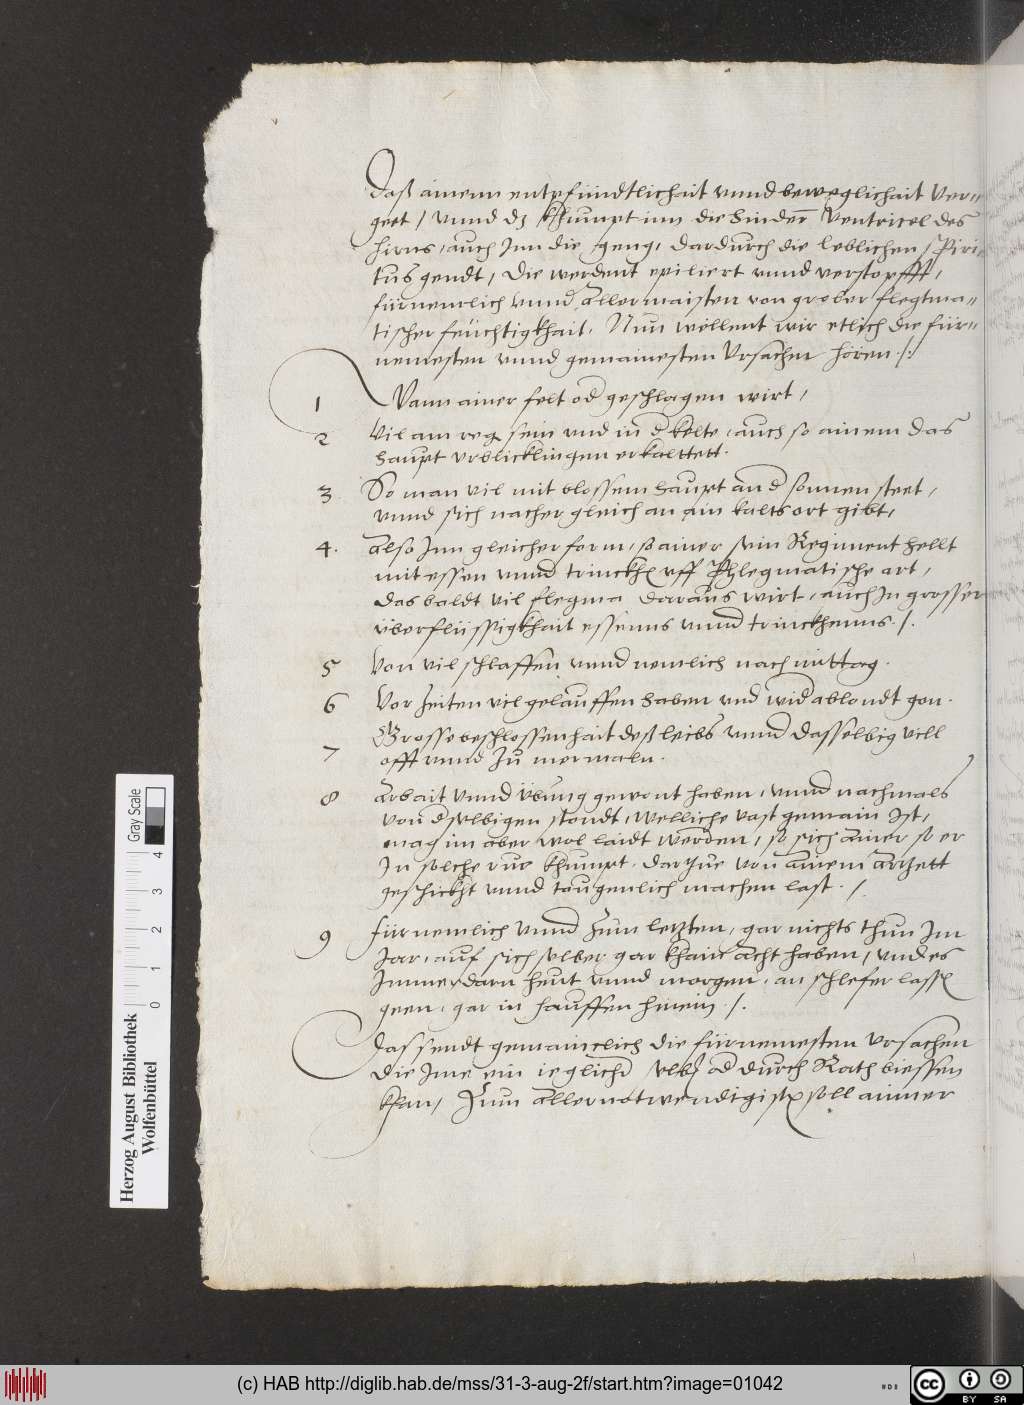 Daß ainem entpfündtlichait vnnd beweglichait ver=
geet / vnnd dz khumpt inn die hinder Ventricel des
hirns, auch Inn die geng, dardurch die leblichen Spiri=
tus gendt, die werdent opiliert vnnd verstopfft,
fürnemlich vnnd allermaisten von grober flegma=
tischer feüchtigkhait. Nun wöllent wir etlich die für=
nemesten vnnd gemainesten Vrsachen hören ./.
1 Wann ainer felt od geschlagen wirt,
2 Vil am reg sein vnd in d kelte, auch so ainem das
haupt vrblicklingen erkalttett.
3 So man vil mit blossem haupt an d sonnen steet,
vnnd sich nacher gleich an ain kalts ort gibt,
4. also Inn gleicher form, so ainer sein Regiment hellt
mit essen vnnd trinckhen vff Phlegmatische art,
das baldt vil flegma daraus wirt, auch In grosser
überflüssigkhait essenns vnnd trinckhenns ./.
5 Von vil schlaffen vnnd nemlich nach mittag.
6 Vor zeiten vil gelauffen haben vnd wid ablondt gon.
7 Grosse beschlossenhait deß leibs vnnd dasselbig vill
offt vnnd zu mermaln.
8 arbait vnnd übung gewont haben, vnnd nachmals
von dselbigen stondt, welliche vast gemain Ist,
mag im aber wol laidt werden, so sich ainer so er
In solche rue khumpt, darzue von ainem artzett
geschickht vnnd taugenlich machen last ./.
9 fürnemlich vnnd zum letzten, gar nichts thun Im
Jar, auf sich selber gar khain acht haben, vnd es
Immerdarn heut vnnd morgen, an schlefer lassen
geen, gar in hauffen hinein ./.
Das sendt gemainclich die fürnemesten vrsachen
die Ime ein ieglicher selbs od durch Rath biessen
khan, Zum allernotwendigisten soll ainner
Herzog August Bibliothek
Wolfenbüttel
0 1 2 3 4
Gray Scale
(c) HAB http://diglib.hab.de/mss/31-3-aug-2f/start.htm?image=01042
cc BY SA